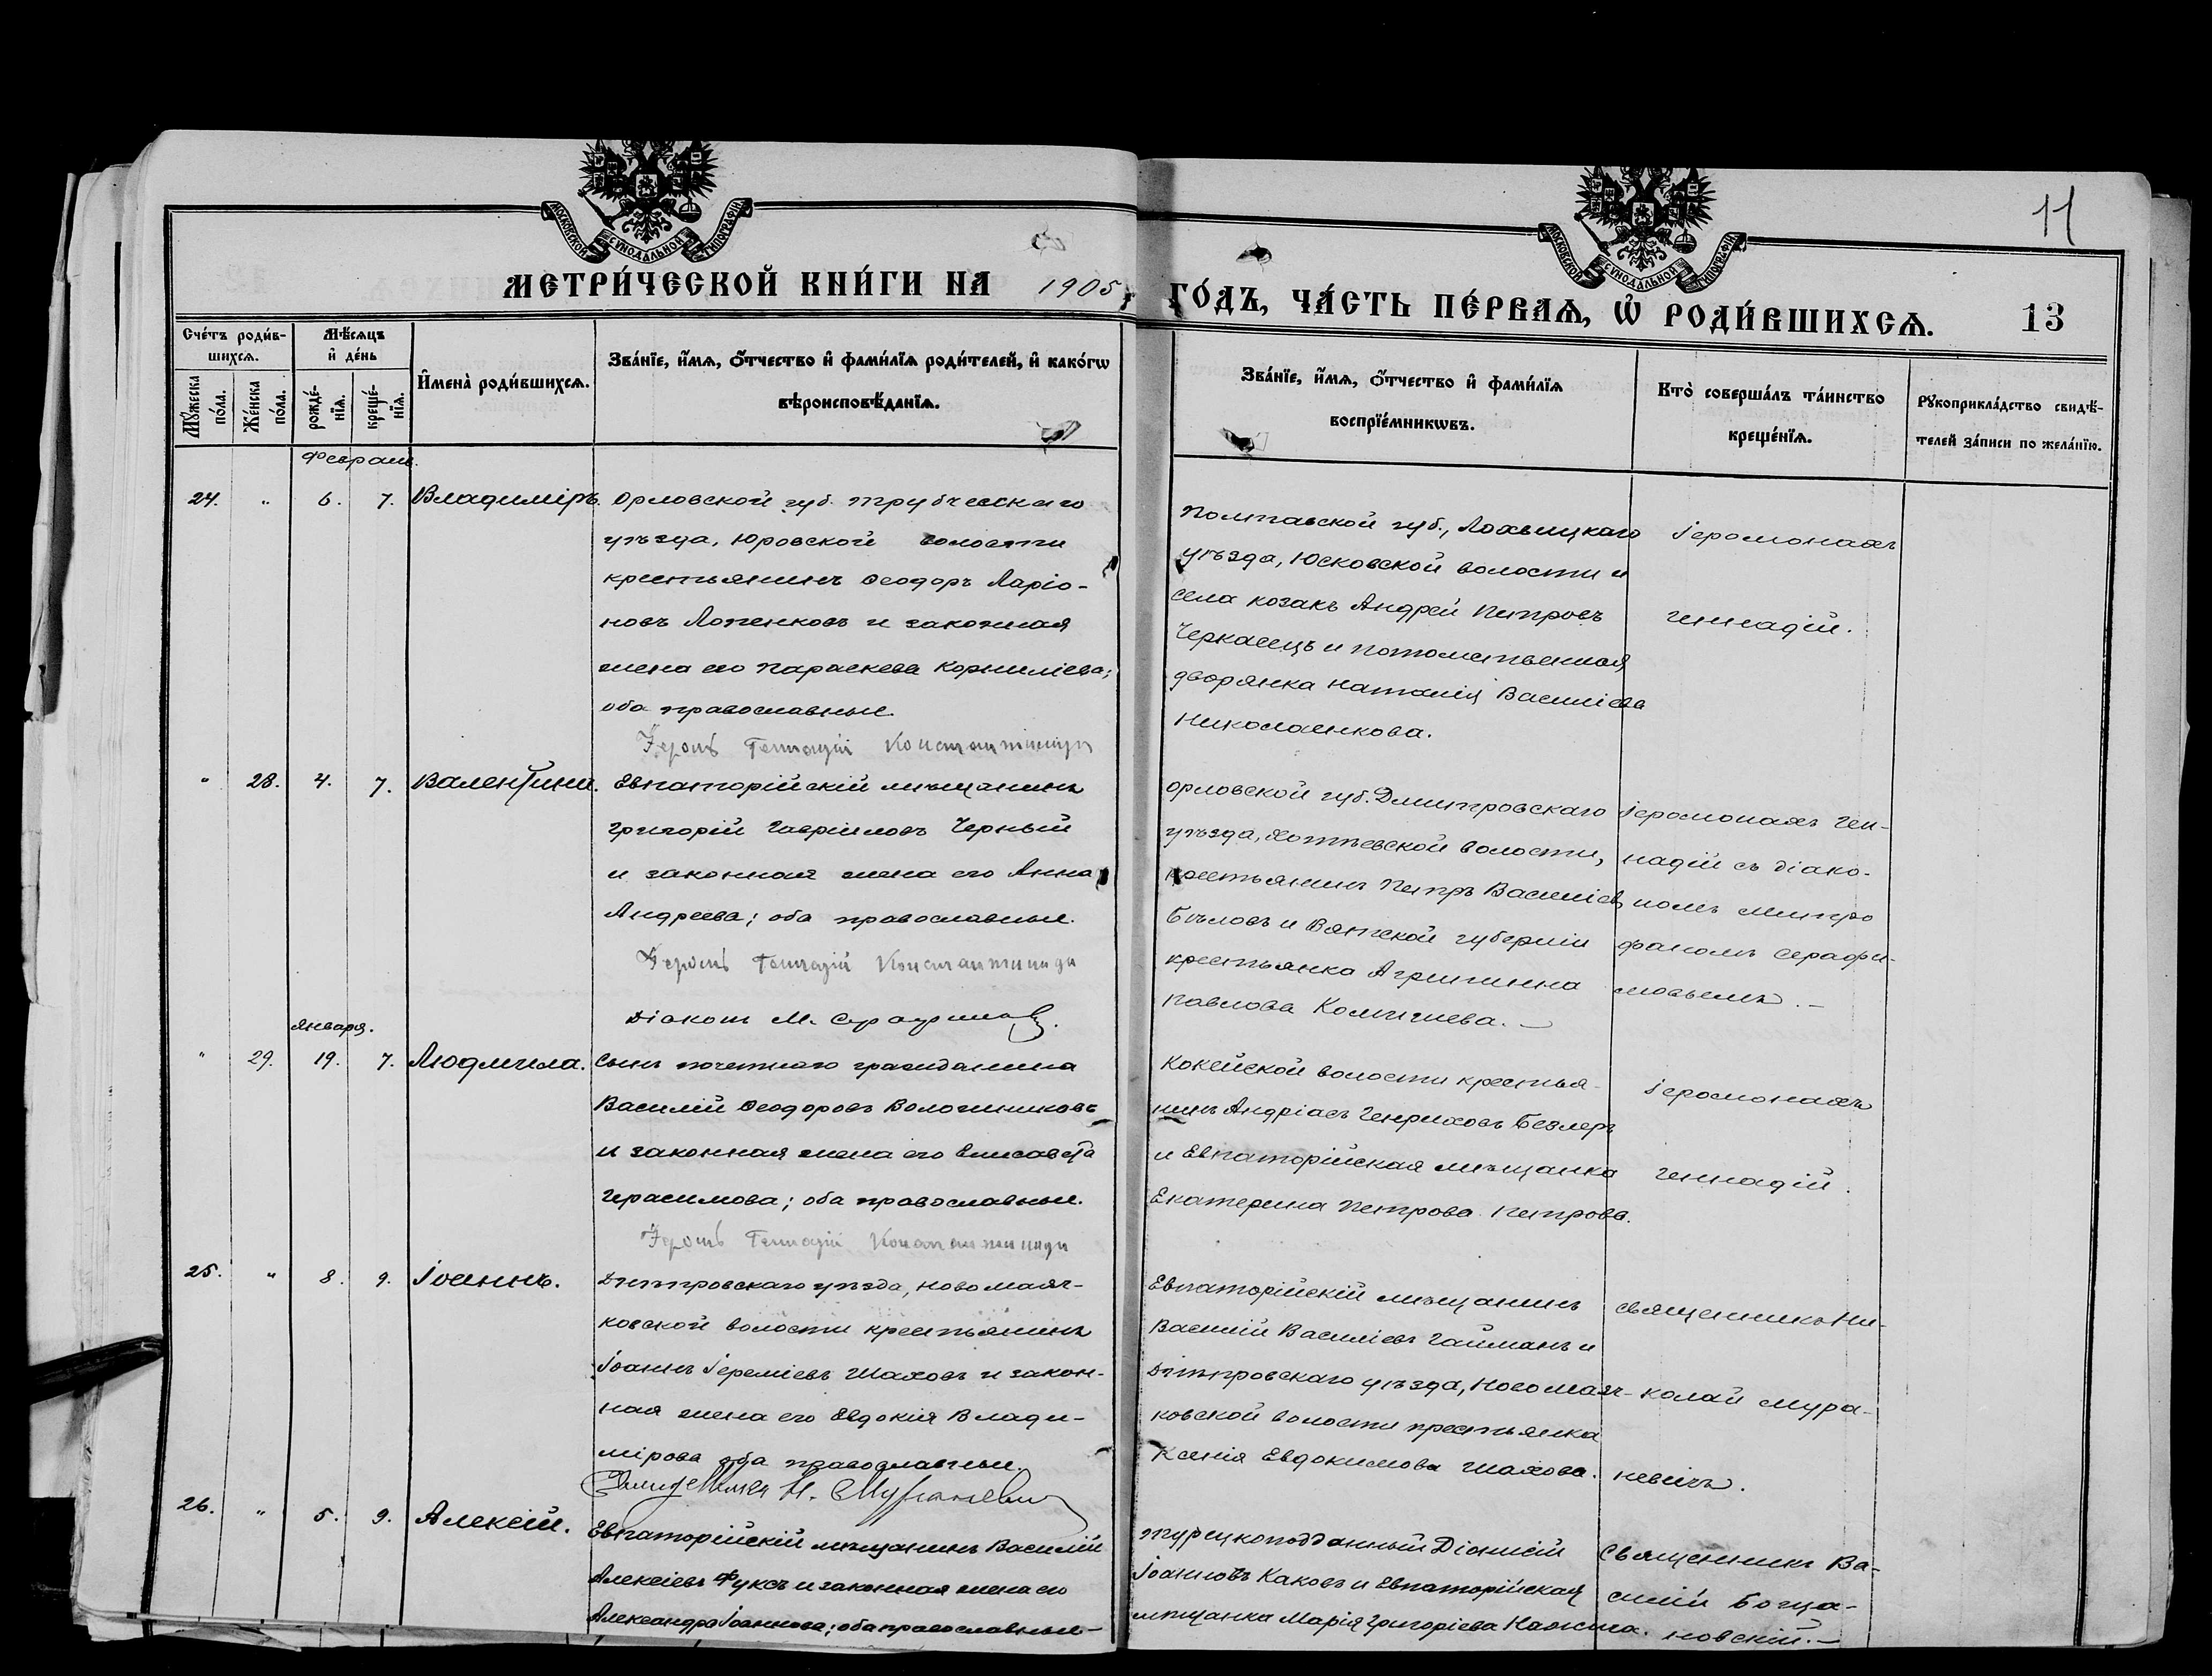 11
МОСКОВСКОЙ СѴНОДАЛЬНОЙ ТИПОГРАФІИ
МОСКОВСКОЙ СѴНОДАЛЬНОЙ ТИПОГРАФІИ
МЕТРИ́ЧЕСКОЙ КНИ́ГИ НА 1905 ГО́ДЪ, ЧА́СТЬ ПЕ́РВАѦ, Ѽ РОДИ́ВШИХСѦ. 13
Сче́тъ роди́в-
шихсѧ.
Мꙋ́жеска
по́ла.
Же́нска
по́ла.
Мѣ́сѧцъ
и҆ де́нь
рожде́-
нїѧ.
креще́-
нїѧ.
И҆мена̀ роди́вшихсѧ.
Зва́нїе, и҆́мѧ, ѻ҆́тчество и҆ фами́лїѧ роди́телей, и҆ како́гѡ
вѣроисповѣ́данїѧ.
Зва́нїе, и҆́мѧ, ѻ҆́тчество и҆ фами́лїѧ
воспрїе́мникѡвъ.
Кто̀ соверша́лъ та́инство
креще́нїѧ.
Рꙋкоприкла́дство свидѣ́-
телей за́писи по жела́нїю.
Февраль.
24. " 6. 7. Владиміръ.
Орловской губ. Трубческаго
уѣзда, Юровской волости
крестьянинъ Ѳеодоръ Ларіо-
новъ Лопенковъ и законная
жена его Параскева Корниліева;
оба православные.
Іером. Геннадій Константиниди
Полтавской губ., Лохвицкаго
уѣзда, Юсковской волости и
села козакъ Андрей Петровъ
Черкасецъ и потомственная
дворянка Наталія Василіева
Николаенкова.
Іеромонахъ
Геннадій.
" 28. 4. 7. Валентина.
Евпаторійскій мѣщанинъ
Григорій Гавріиловъ Черный
и законная жена его Анна
Андреева; оба православные.
Іером. Геннадій Константиниди
Діаконъ М. Серафимовъ.
Орловской губ. Дмитровскаго
уѣзда, Хотѣевской волости,
крестьянинъ Петръ Василіевъ
Бѣловъ и Вятской губерніи
крестьянка Агрипина
Павлова
Іеромонахъ Ген-
надій съ діако-
номъ Митро
фаномъ Серафи-
мовымъ. —
января.
" 29. 19. 7. Людмила.
Сынъ почетнаго гражданина
Василій Ѳеодоровъ Волошиниковъ
и законная жена его Елисавета
Герасимова; оба православные.
Іером. Геннадій Константиниди
Кокейской волости крестья-
нинъ Андріасъ Генриховъ Безлеръ
и Евпаторійская мѣщанка
Екатерина Петрова Петрова.
Іеромонахъ
Геннадій.
25. " 8. 9. Іоаннъ.
Днѣпровскаго уѣзда, Новомаяч-
ковской волости крестьянинъ
Іоаннъ Іереміевъ Шаховъ и закон-
ная жена его Евдокія Влади-
мірова оба православные.
Священникъ Н. Мураневичъ
Евпаторійскій мѣщанинъ
Василій Василіевъ Гайманъ и
Днѣпровскаго уѣзда, Новомаяч-
ковской волости крестьянка
Ксенія Евдокимова Шахова.
священникъ Ни-
колай Мура-
невичъ.
26. " 5. 9. Алексій.
Евпаторійскій мѣщанинъ Василій
Алексіевъ Фуксъ и законная жена его
Александра Іоаннова; оба православные —
Турецкоподданный Діонисій
Іоанновъ Каковъ и Евпаторійская
мѣщанка Марія Григоріева
Священникъ Ва-
силій Богда-
новскій. —